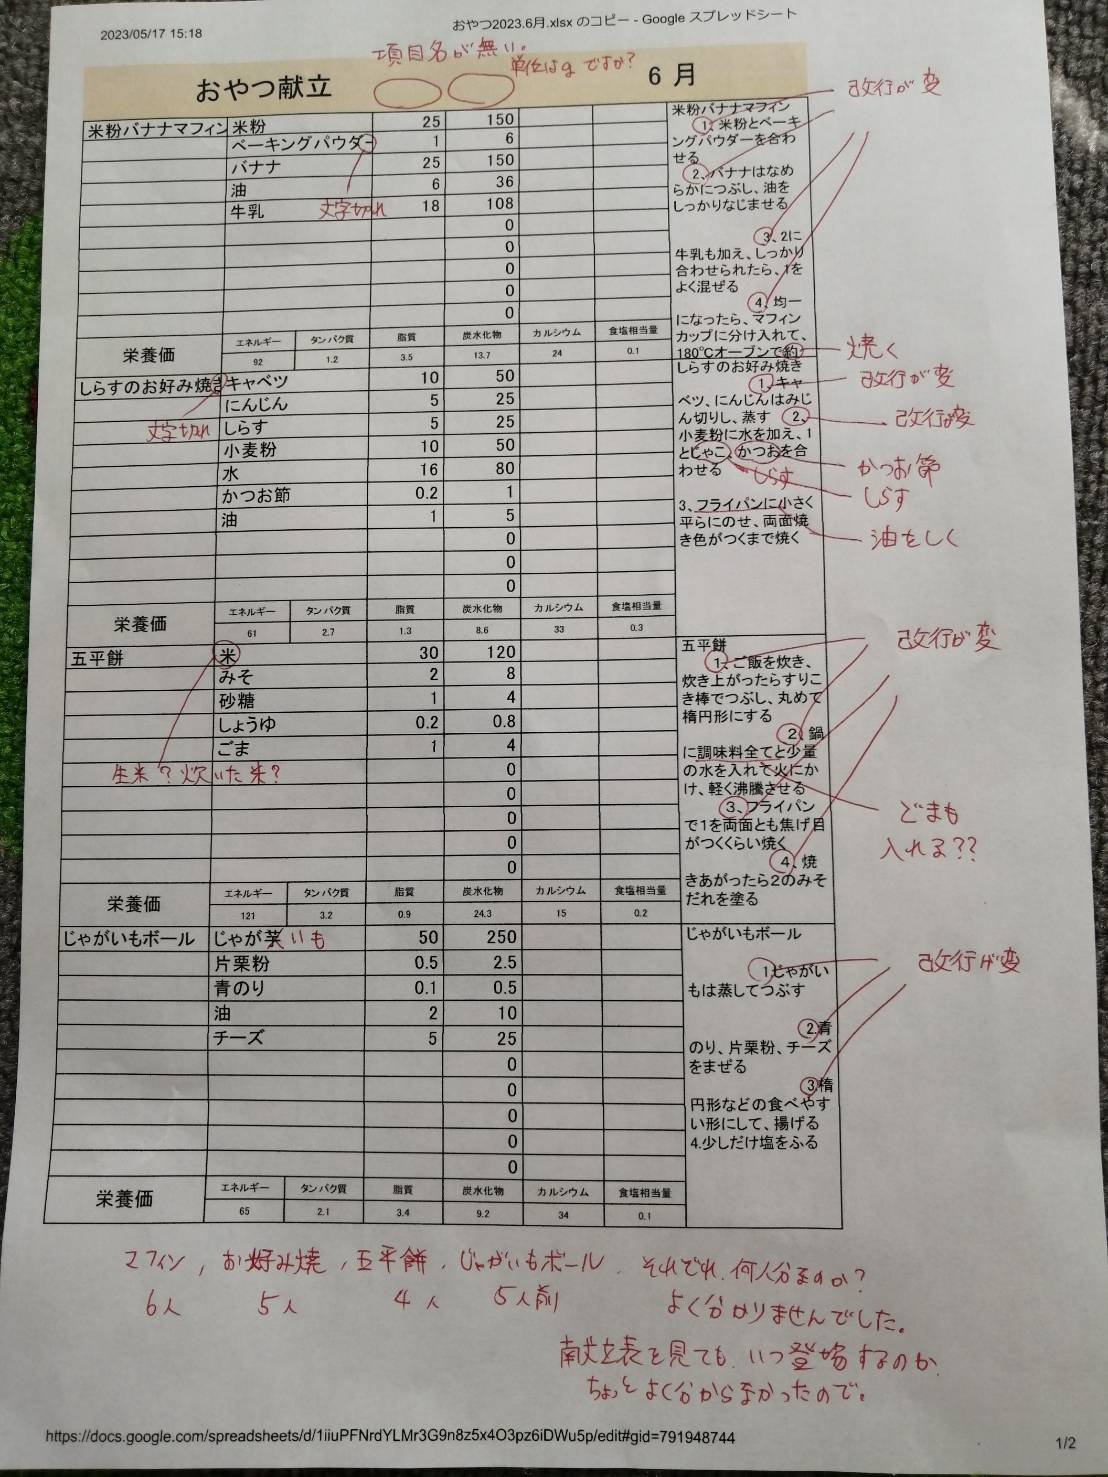 2023/05/17 15:18
おやつ2023.6月.xlsx のコピー - Google スプレッドシート
項目名が無い。
単位はgですか?
おやつ献立
6 月
改行が変
米粉バナナマフィン 米粉 25 150
ベーキングパウダー 1 6
バナナ 25 150
油 6 36
文字切れ
牛乳 18 108
0
0
0
0
0
米粉バナナマフィン
1、米粉とベーキ
ングパウダーを合わ
せる
2、バナナはなめ
らかにつぶし、油を
しっかりなじませる
3、2に
牛乳も加え、しっかり
合わせられたら、1を
よく混ぜる
4、均一
になったら、マフィン
カップに分け入れて、
180℃オーブンで約
焼く
栄養価 エネルギー タンパク質 脂質 炭水化物 カルシウム 食塩相当量
92 1.2 3.5 13.7 24 0.1
しらすのお好み焼き キャベツ 10 50
にんじん 5 25
文字切れ
しらす 5 25
小麦粉 10 50
水 16 80
かつお節 0.2 1
油 1 5
0
0
0
しらすのお好み焼き
1、キャ
改行が変
ベツ、にんじんはみじ
ん切りし、蒸す 2、
改行が変
小麦粉に水を加え、1
とじゃこ、かつおを合
わせる
しらす
かつお節
しらす
3、フライパンに小さく
平らにのせ、両面焼
き色がつくまで焼く
油をしく
栄養価 エネルギー タンパク質 脂質 炭水化物 カルシウム 食塩相当量
61 2.7 1.3 8.6 33 0.3
五平餅 米 30 120
みそ 2 8
砂糖 1 4
しょうゆ 0.2 0.8
ごま 1 4
生米?炊いた米?
0
0
0
0
0
五平餅
改行が変
1、ご飯を炊き、
炊き上がったらすりこ
き棒でつぶし、丸めて
楕円形にする
2、鍋
に調味料全てと少量
の水を入れて火にか
け、軽く沸騰させる
3、フライパン
で1を両面とも焦げ目
がつくくらい焼く
4、焼
きあがったら2のみそ
だれを塗る
ごまも
入れる??
栄養価 エネルギー タンパク質 脂質 炭水化物 カルシウム 食塩相当量
121 3.2 0.9 24.3 15 0.2
じゃがいもボール じゃが芋 いも 50 250
片栗粉 0.5 2.5
青のり 0.1 0.5
油 2 10
チーズ 5 25
0
0
0
0
0
じゃがいもボール
改行が変
1じゃがい
もは蒸してつぶす
2.青
のり、片栗粉、チーズ
をまぜる
3楕
円形などの食べやす
い形にして、揚げる
4.少しだけ塩をふる
栄養価 エネルギー タンパク質 脂質 炭水化物 カルシウム 食塩相当量
65 2.1 3.4 9.2 34 0.1
マフィン, お好み焼, 五平餅, じゃがいもボール. それぞれ、何人分なのか?
6人 5人 4人 5人前 よく分かりませんでした。
献立表を見ても、いつ登場するのか
ちょっとよく分からなかったので。
https://docs.google.com/spreadsheets/d/1iiuPFNrdYLMr3G9n8z5x4O3pz6iDWu5p/edit#gid=791948744
1/2